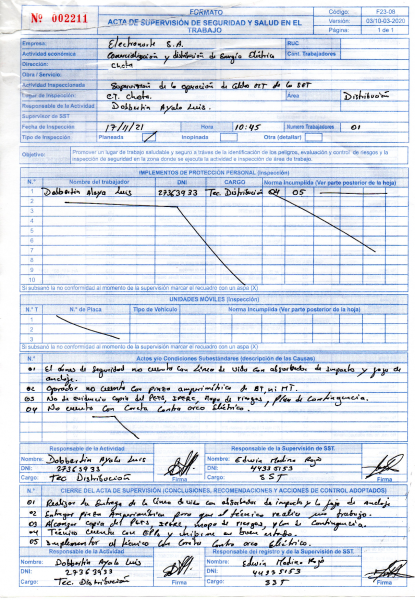 FORMATO
ACTA DE SUPERVISIÓN DE SEGURIDAD Y SALUD EN EL TRABAJO
Nº 002211
Código: F23-08
Versión: 03/10-03-2020
Página: 1 de 1
Empresa: Electronorte S.A. RUC
Actividad económica Comercialización y distribución de Energía Eléctrica Cant. Trabajadores
Dirección: Chota
Obra / Servicio:
Actividad Inspeccionada Supervision de la operación de celdas MT de la SET
Lugar de Inspección: CT. Chota. Área Distribución
Responsable de la Actividad Dobbertin Ayala Luis.
Supervisor de SST
Fecha de Inspección 17/11/21 Hora 10:45 Numero Trabajadores 01
Tipo de Inspección: Planeada Inopinada Otra (detallar)
Objetivo: Promover un lugar de trabajo saludable y seguro a través de la identificación de los peligros, evaluación y control de riesgos y la inspección de seguridad en la zona donde se ejecuta la actividad e inspección de área de trabajo.
IMPLEMENTOS DE PROTECCIÓN PERSONAL (Inspección)
N.º Nombre del trabajador DNI CARGO Norma Incumplida (Ver parte posterior de la hoja)
1 Dobbertin Alaya Luis 27363933 Tec. Distribución 04 05
2
3
4
5
6
7
8
9
10
Si subsanó la no conformidad al momento de la supervisión marcar el recuadro con un aspa (X)
UNIDADES MÓVILES (Inspección)
N.º T N.º de Placa Tipo de Vehículo Norma Incumplida (Ver parte posterior de la hoja)
1
2
3
Si subsanó la no conformidad al momento de la supervisión marcar el recuadro con un aspa (X)
N.º Actos y/o Condiciones Subestándares (descripción de las Causas)
01 El arnes de Seguridad no cuenta con linea de vida con absorbedor de impacto y faja de anclaje.
02 Operador no cuenta con pinza amperimétrica de BT ni MT.
03 No se evidencia copia del PETS, IPERC, mapa de riesgos, y Plan de Contingencia.
04 No cuenta con Careta Contra arco Eléctrico.
Responsable de la Actividad Responsable de la Supervisión de SST
Nombre: Dobbertin Ayala Luis Nombre: Edwin Medina Rojo
DNI: 27363933 DNI: 44335153
Cargo: Tec Distribución Firma Cargo: SST Firma
N.º CIERRE DEL ACTA DE SUPERVISIÓN (CONCLUSIONES, RECOMENDACIONES Y ACCIONES DE CONTROL ADOPTADOS)
01 Realizar la Entrega de la linea de vida con absorbedor de impacto y la faja de anclaje
02 Entregar pinza Amperimétrica para que el técnico realice su trabajo.
03 Alcanzar copia del PETS, IPERC, mapa de riesgos, y Plan de Contingencia.
04 Técnico cuenta con EPPs y uniforme en buen estado.
05 Implementar al técnico con Careta Contra arco Eléctrico.
Responsable de la Actividad Responsable del registro y de la Supervisión de SST.
Nombre: Dobbertin Ayala Luis Nombre: Edwin Medina Rojo
DNI: 27363933 DNI: 44335153
Cargo: Tec. Distribución Firma Cargo: SST Firma